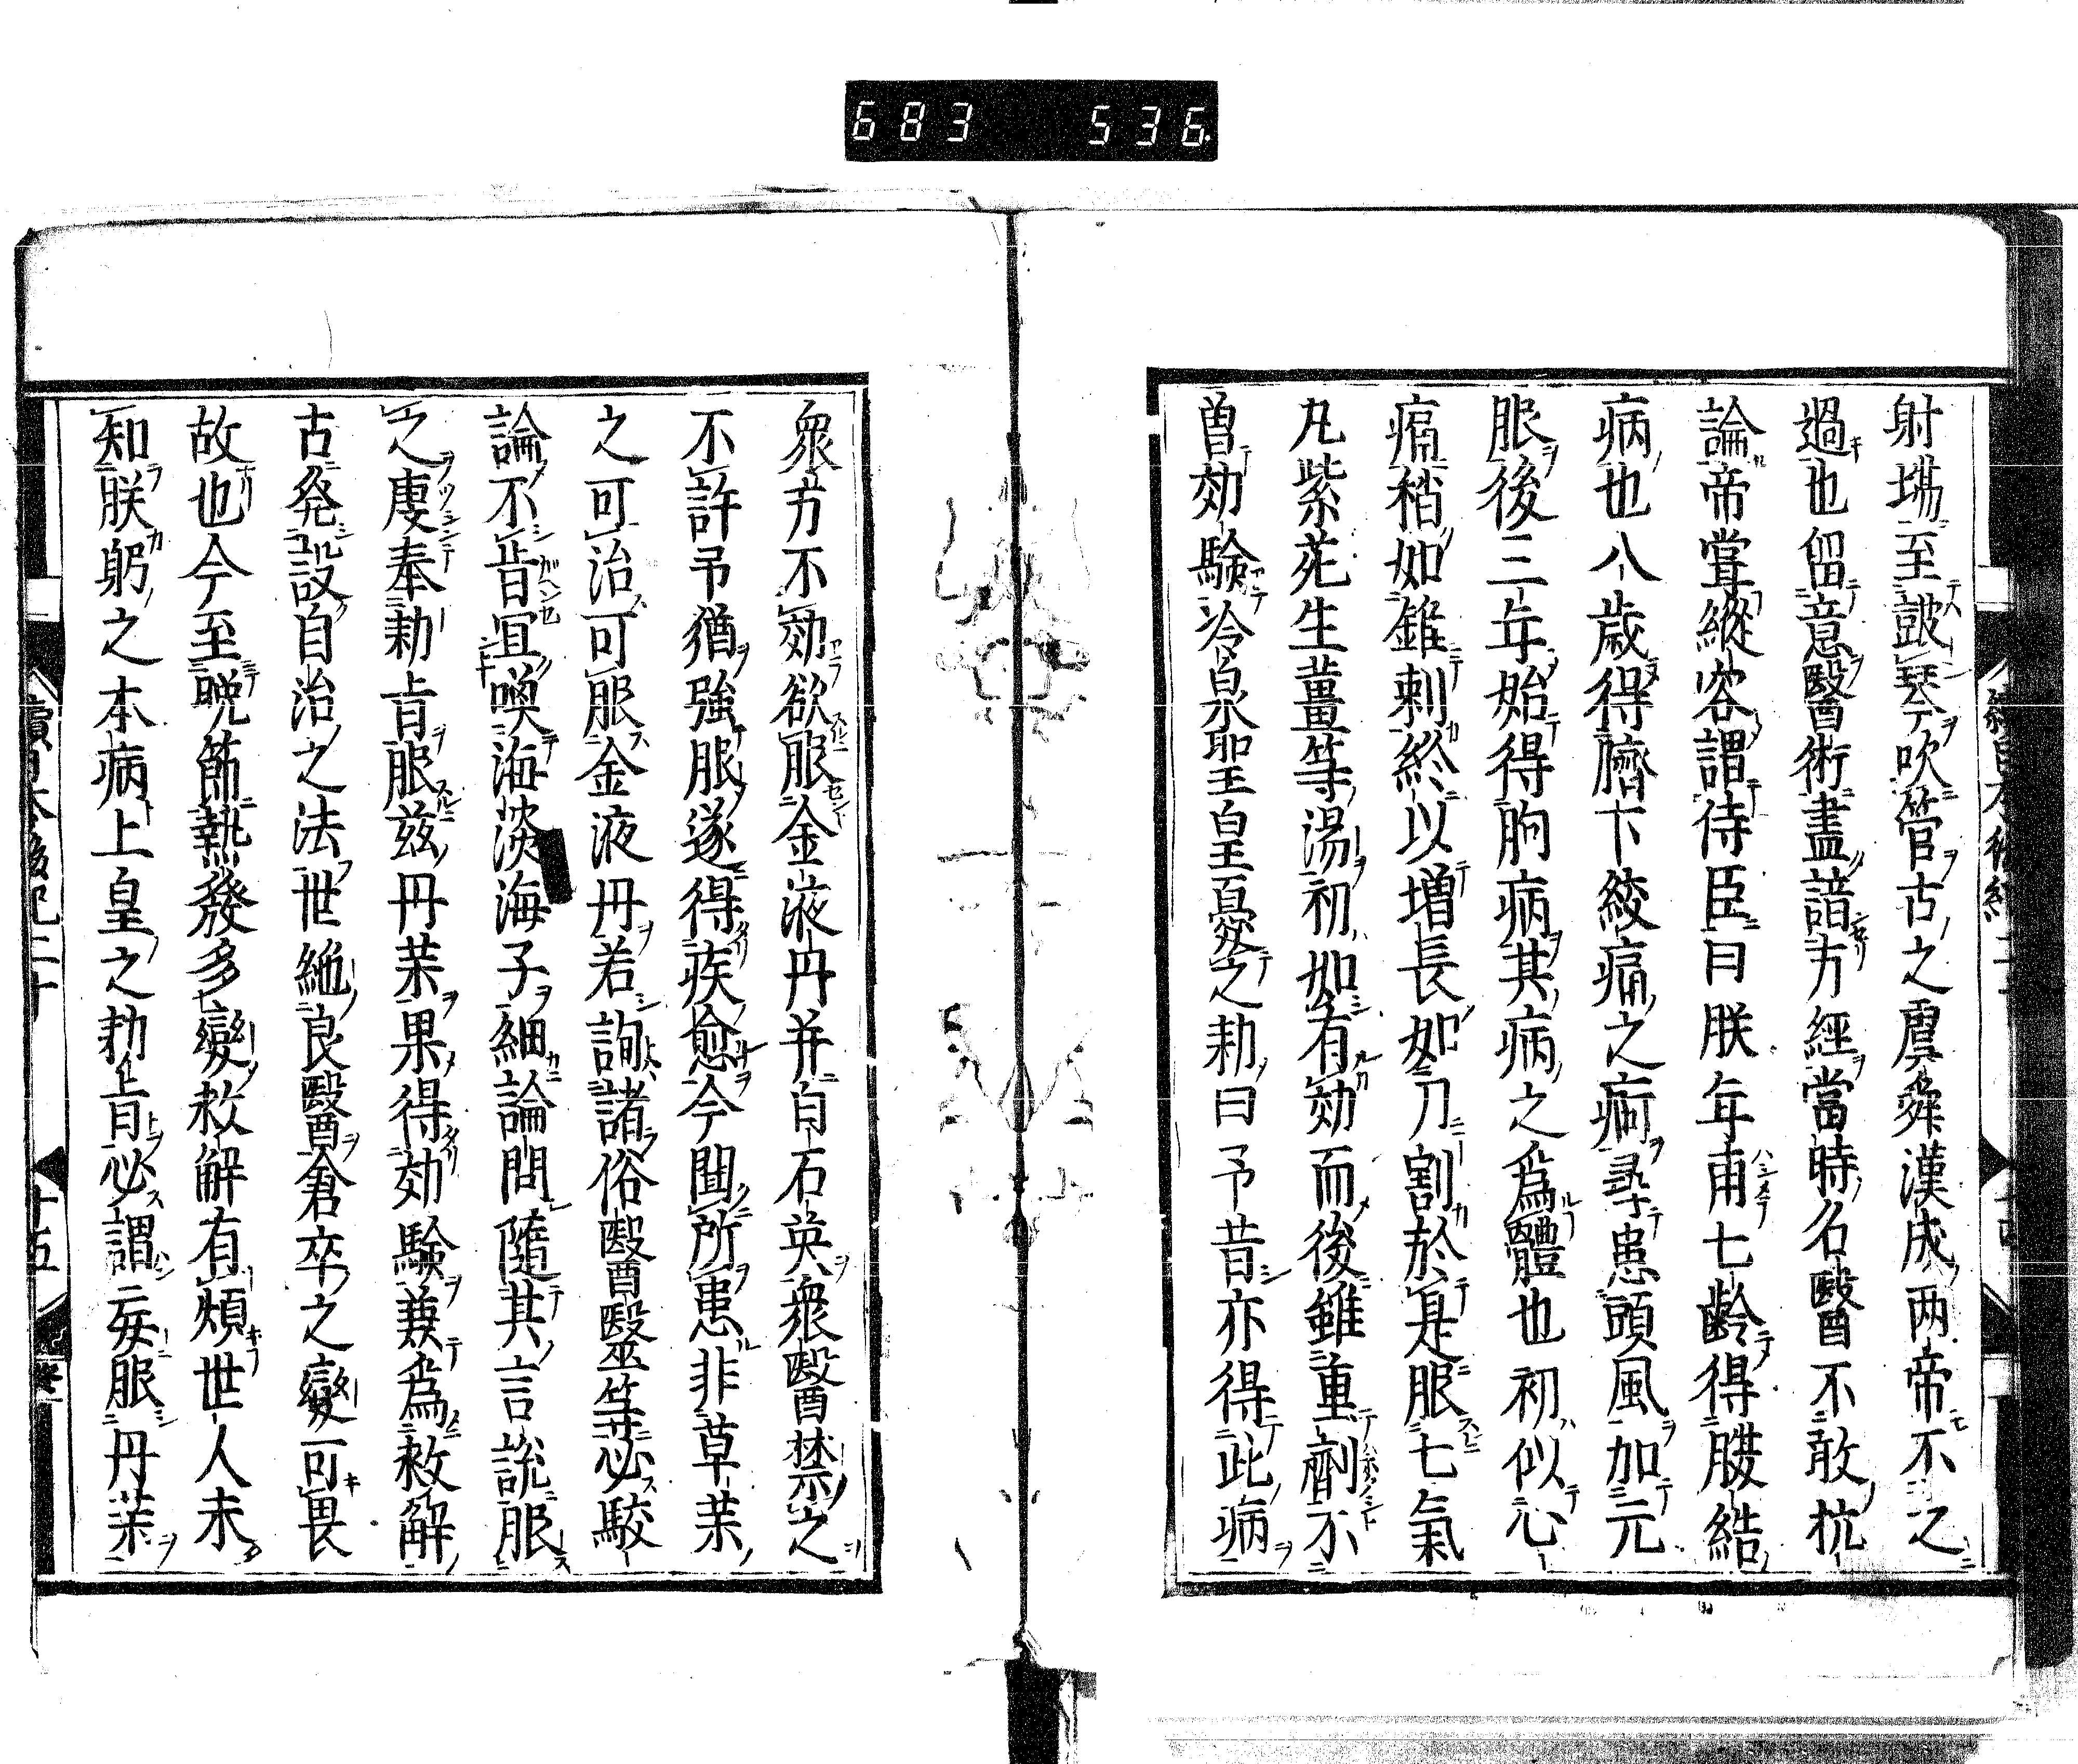 683 536
射場至皷琴吹管古之虞舜漢成两帝不之
過也留意醫術盡諳方經當時名醫不敢抗
論帝甞縱容謂侍臣曰朕年甫七齡得腹結
病也八歳得臍下絞痛之痾尋患頭風加元
服後三年始得胸病其病之爲體也初似心
痛稍如錐刺終以增長如刀割於是服七氣
丸紫苑生薑等湯初如有効而後雖重劑不
曽効驗冷泉聖皇憂之勅曰予昔亦得此病
衆方不効欲服金液丹并白石英衆醫禁之
不許吊猶強服遂得疾愈今聞所患非草茉
之可治可服金液丹若詢諸俗醫毉等必駮
論不肯宜喚海淡海子細論問隨其言説服
之虔奉勅旨服兹丹茉果得効驗兼爲救解
古発設自治之法世絶良醫倉卒之變可畏
故也今至晩節熱發多變救解有煩世人未
知朕躬之本病上皇之勅旨必謂妄服丹茉
十五